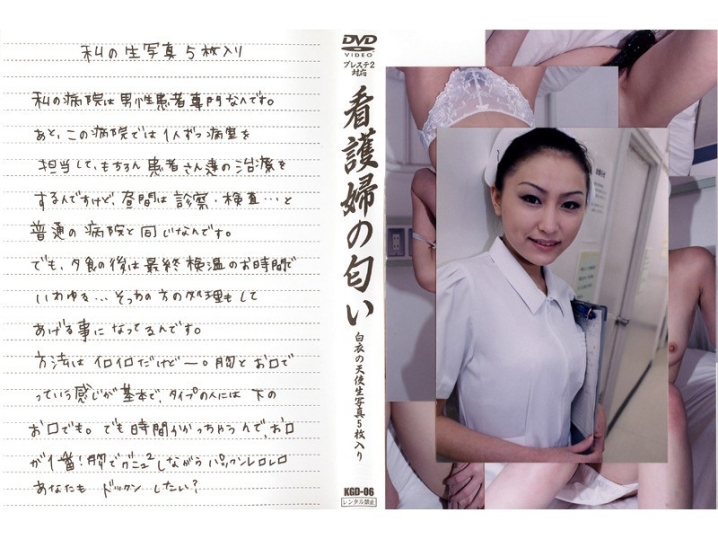 私の生写真5枚入り
私の病院は男性患者専門なんです。
あと、この病院では1人ずつ病室を
担当して、もちろん患者さん達の治療を
するんですけど、昼間は診察・検査…と
普通の病院と同じなんです。
でも、夕食の後は最終検温のお時間で
いわゆる…そっちの方の処理もして
あげる事になってるんです。
方法はイロイロだけどー。胸とお口で
っていう感じが基本で、タイプの人には下の
お口でも。でも時間かかっちゃうんで、お口
が1番!胸でグニュ²しながらパックンレロレロ
あなたも ドックン したい?
DVD
VIDEO
プレステ2
対応
看護婦の匂い
白衣の天使生写真5枚入り
KGD-06
レンタル禁止